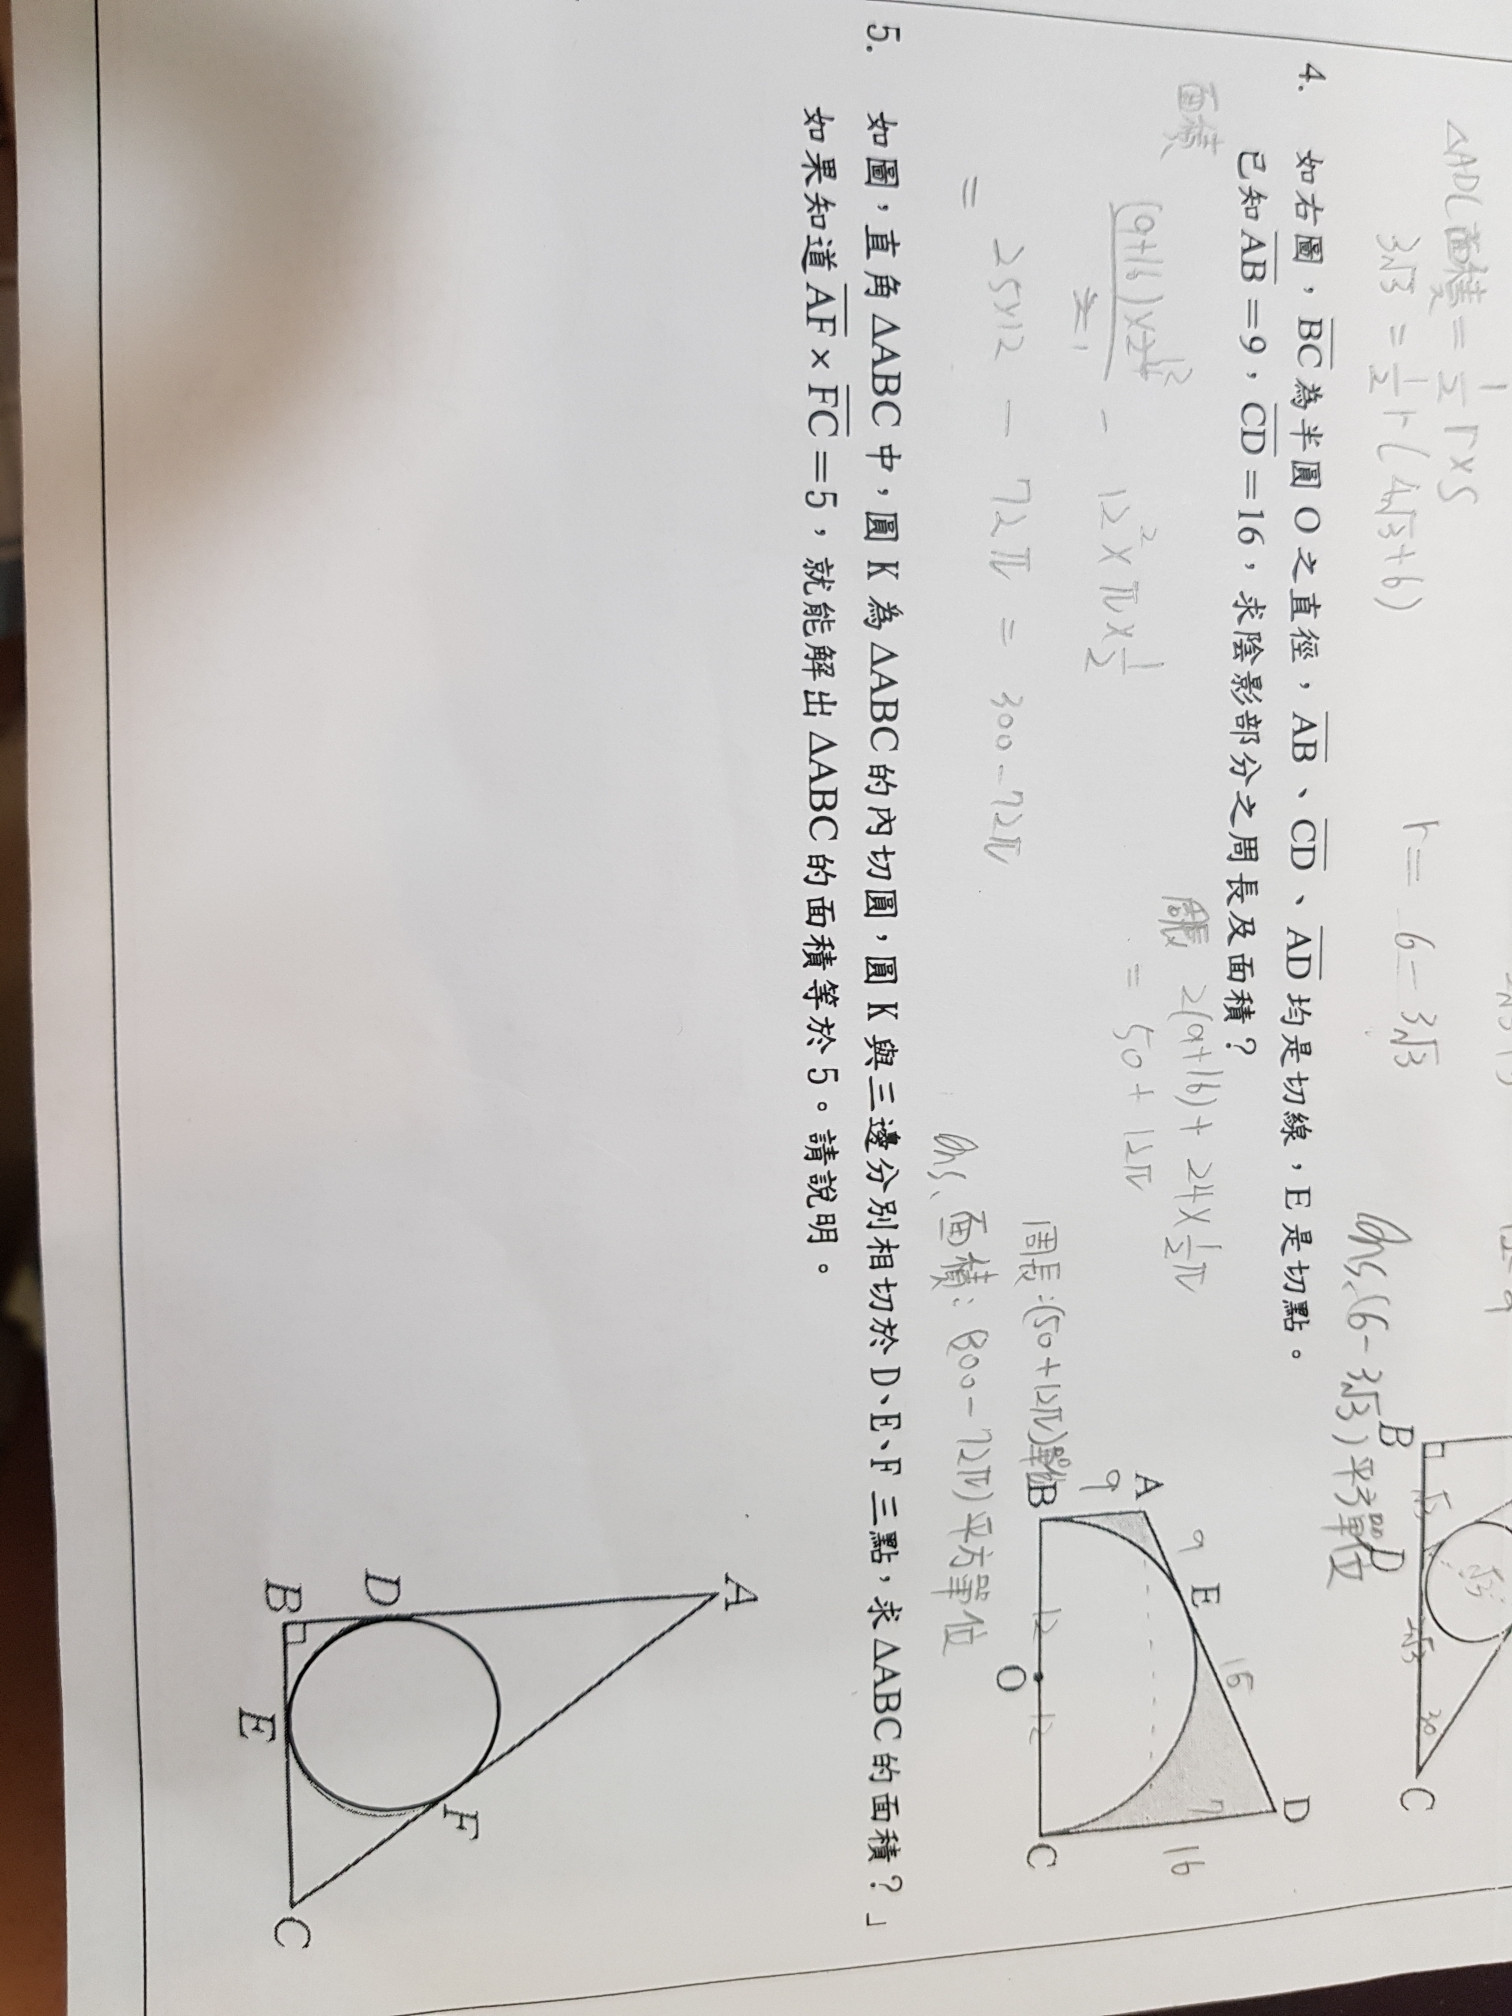 △ADC面積 = 1/2 r × S
3√3 = 1/2 r (4√3+6)
r = 6-3√3
Ans、(6-3√3) 平方單位
B
D
C
√3
√3
2√3
30
4. 如右圖，BC為半圓O之直徑，AB、CD、AD均是切線，E是切點。
已知AB=9，CD=16，求陰影部分之周長及面積？
面積
(9+16)×24 12
2 1
- 12²×π×1/2
= 25×12 - 72π = 300-72π
周長 2(9+16) + 24×1/2π
= 50 + 12π
周長：(50+12π)單位
Ans、面積：(300-72π)平方單位
A
9
9
E
16
D
7
16
B
12
O
12
C
5. 如圖，直角△ABC中，圓K為△ABC的內切圓，圓K與三邊分別相切於D、E、F三點，求△ABC的面積？」
如果知道AF×FC=5，就能解出△ABC的面積等於5。請說明。
A
D
B
E
F
C